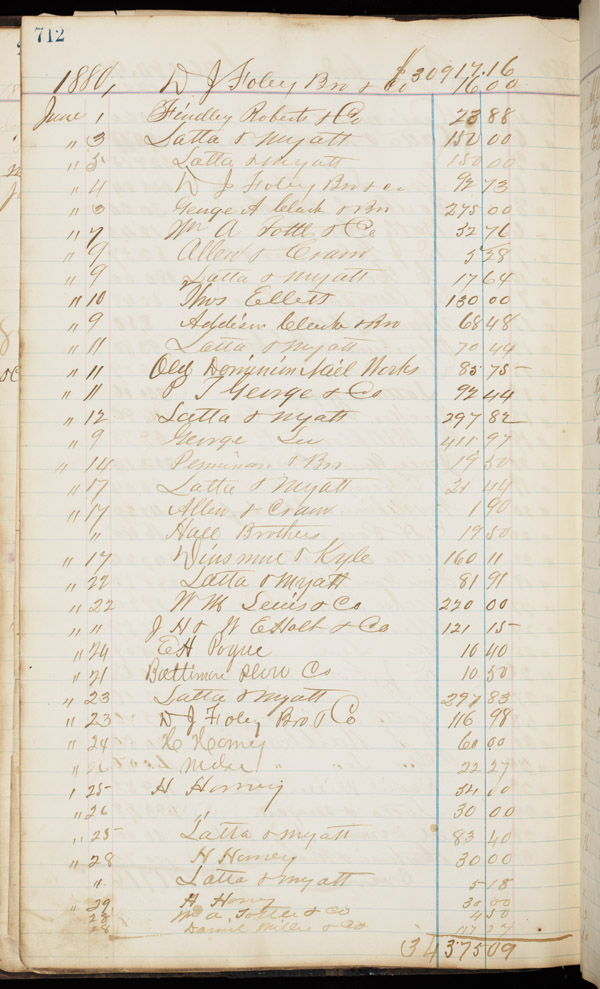 712
$30917.16
1880, D J Foley Bro & Co 16 00
June 1 Findley Roberts & Co 23 88
" 3 Latta & Myatt 150 00
" 5 Latta & Myatt 150 00
" 4 D J Foley Bro & co 92 73
" 3 George A Clark & Bro 275 00
" 7 Wm A Tottle & Co 32 76
" 9 Allen & Cram 5 28
" 9 Latta & Myatt 17 64
" 10 Thos Ellett 130 00
" 9 Addison Clark & Bro 68 48
" 11 Latta & Myatt 70 44
" 11 Old Dominion Nail Works 85 75
" 11 P T George & Co 92 44
" 12 Latta & Myatt 297 82
" 9 George 411 97
" 14 & Bro 19 50
" 17 Latta & Myatt 21 44
" 17 Allen & Cram 1 90
" Hall Brothers 19 50
" 17 Winsmore & Kyle 160 11
" 22 Latta & Myatt 81 91
" 22 W M Lewis & Co 220 00
" " J H & W E Holt & Co 121 15
" 24 E H Pogue 10 40
" 21 Baltimore Plow Co 10 50
" 23 Latta & Myatt 297 83
" 23 D J Foley Bro & Co 116 98
" 24 H Horney 60 00
" Mdse " " " 22 27
" 25 H Horney 34 00
" 26 " 30 00
" 25 Latta & Myatt 83 40
" 28 H Horney 30 00
" Latta & Myatt 5 18
" 29 H Horney 30 00
Wm A. Tottle & Co 4 50
28 Daniel Miller & Co
34375 09